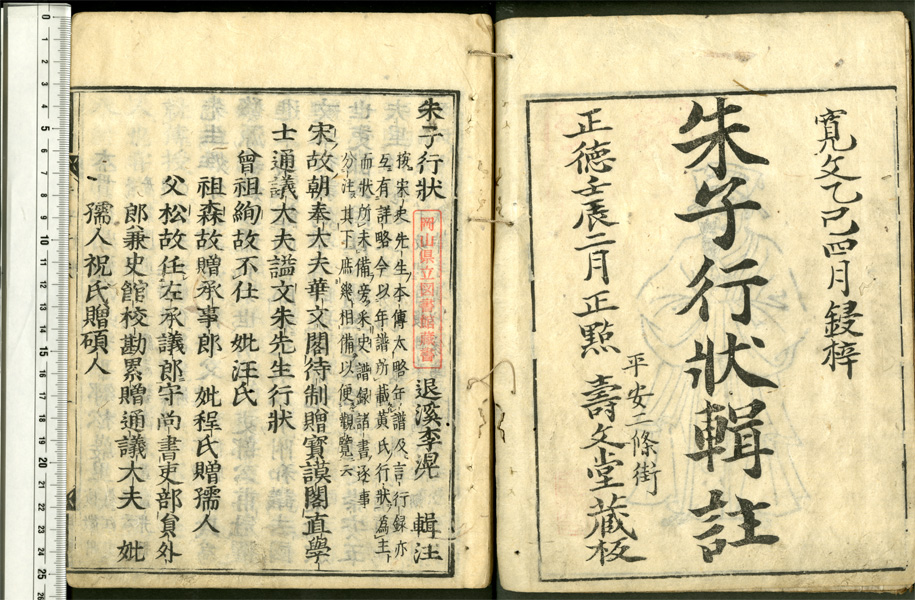 寬文乙巳四月鋟梓
朱子行狀輯註
平安二條街
正德壬辰二月正點 壽文堂藏板
朱子行狀 退溪李滉 輯注
按宋史先生本傳太略年譜及言行錄亦
互有詳略今以年譜所載黃氏行狀為主
而狀所未備旁采史譜錄諸書逐事
分注其下庶幾相備以便觀覽云
宋故朝奉大夫華文閣待制贈寶謨閣直學
士通議大夫謚文朱先生行狀
曾祖絢故不仕 妣汪氏
祖森故贈承事郎 妣程氏贈孺人
父松故任左承議郎守尚書吏部員外
郎兼史館校勘累贈通議大夫 妣
孺人祝氏贈碩人
岡山県立図書館藏書
0
1
2
3
4
5
6
7
8
9
10
11
12
13
14
15
16
17
18
19
20
21
22
23
24
25